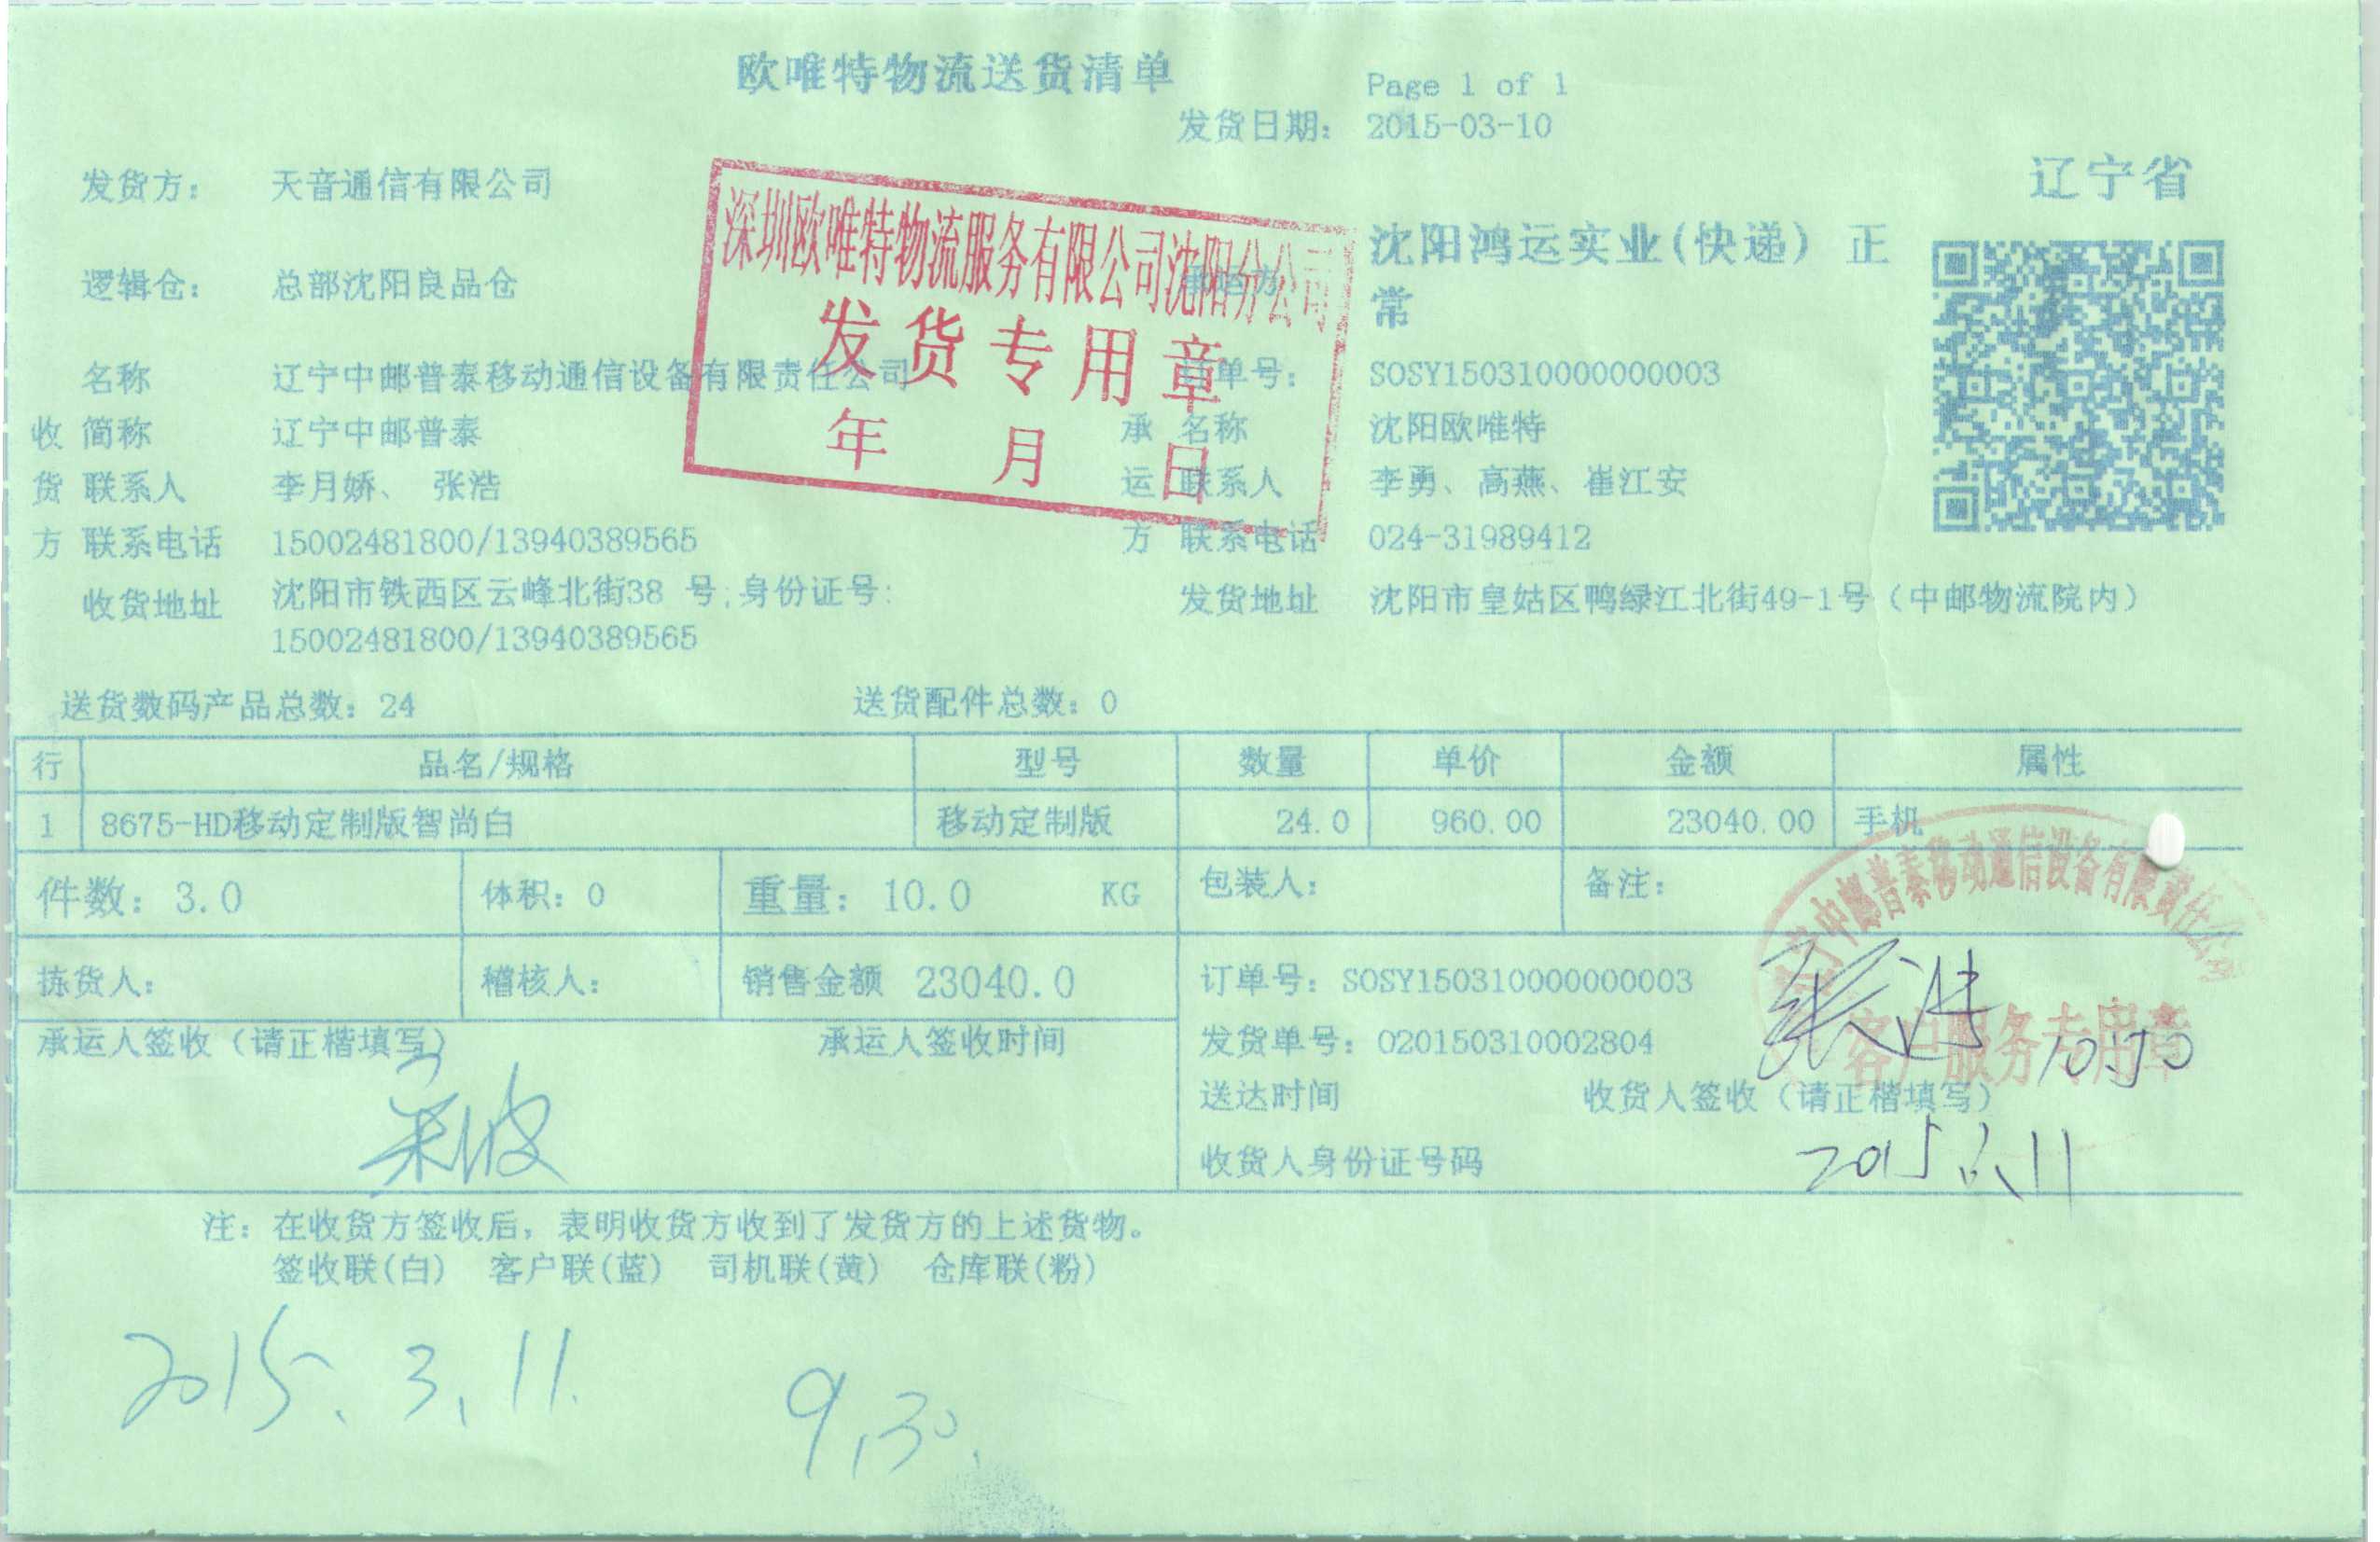 欧唯特物流送货清单
Page 1 of 1
发货日期: 2015-03-10
辽宁省
发货方: 天音通信有限公司
深圳欧唯特物流服务有限公司沈阳分公司
发货专用章
年 月 日
承运方: 沈阳鸿运实业(快递) 正
常
逻辑仓: 总部沈阳良品仓
名称 辽宁中邮普泰移动通信设备有限责任公司 订单号: SOSY150310000000003
收 简称 辽宁中邮普泰 承 名称 沈阳欧唯特
货 联系人 李月娇、 张浩 运 联系人 李勇、高燕、崔江安
方 联系电话 15002481800/13940389565 方 联系电话 024-31989412
收货地址 沈阳市铁西区云峰北街38 号;身份证号: 发货地址 沈阳市皇姑区鸭绿江北街49-1号（中邮物流院内）
15002481800/13940389565
送货数码产品总数: 24 送货配件总数: 0
行 品名/规格 型号 数量 单价 金额 属性
1 8675-HD移动定制版智尚白 移动定制版 24.0 960.00 23040.00 手机
件数: 3.0 体积: 0 重量: 10.0 KG 包装人: 备注:
中邮普泰移动通信设备有限责任公司
客户服务专用章
拣货人: 稽核人: 销售金额 23040.0 订单号: SOSY150310000000003
张浩
承运人签收（请正楷填写） 承运人签收时间 发货单号: 020150310002804
送达时间 收货人签收（请正楷填写）
收货人身份证号码
注: 在收货方签收后, 表明收货方收到了发货方的上述货物。
签收联(白) 客户联(蓝) 司机联(黄) 仓库联(粉)
2015、3、11.
9,30.